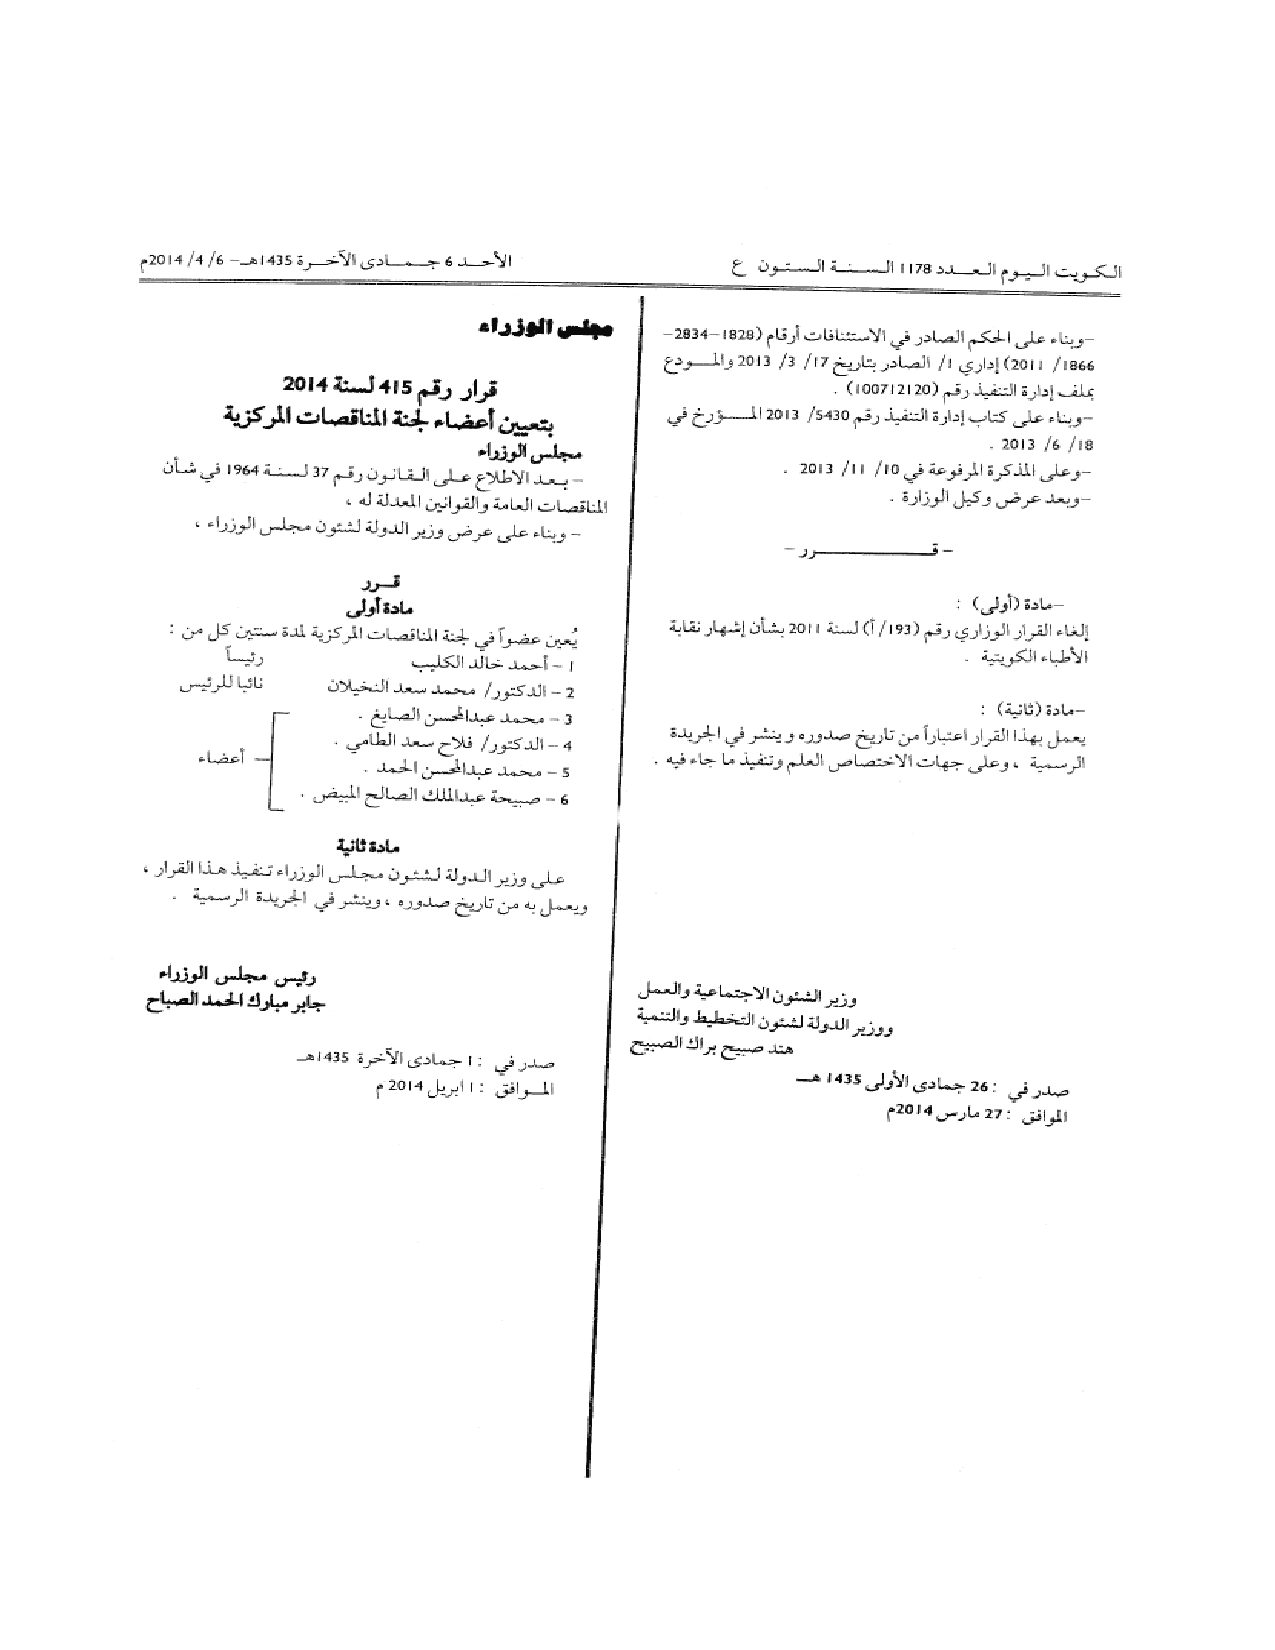 الكويت اليوم العدد 1178 السنة الستون ع
الأحد 6 جمادى الآخرة 1435هـ – 6/ 4/ 2014م
–وبناء على الحكم الصادر في الاستئنافات أرقام (1828–2834–
1866/ 2011) إداري /1 الصادر بتاريخ 17/ 3/ 2013 والمودع
بملف إدارة التنفيذ رقم (100712120) .
–وبناء على كتاب إدارة التنفيذ رقم 5430/ 2013 المؤرخ في
18/ 6/ 2013 .
–وعلى المذكرة المرفوعة في 10/ 11/ 2013 .
–وبعد عرض وكيل الوزارة .
– قـــرر –
–مادة (أولى) :
إلغاء القرار الوزاري رقم (193/ أ) لسنة 2011 بشأن إشهار نقابة
الأطباء الكويتية .
–مادة (ثانية) :
يعمل بهذا القرار اعتباراً من تاريخ صدوره وينشر في الجريدة
الرسمية ، وعلى جهات الاختصاص العلم وتنفيذ ما جاء فيه .
وزير الشئون الاجتماعية والعمل
ووزير الدولة لشئون التخطيط والتنمية
هند صبيح براك الصبيح
صدر في : 26 جمادى الأولى 1435 هـ
الموافق : 27 مارس 2014م
مجلس الوزراء
قرار رقم 415 لسنة 2014
بتعيين أعضاء لجنة المناقصات المركزية
مجلس الوزراء
– بعد الاطلاع على القانون رقم 37 لسنة 1964 في شأن
المناقصات العامة والقوانين المعدلة له ،
– وبناء على عرض وزير الدولة لشئون مجلس الوزراء ،
قـرر
مادة أولى
يُعين عضواً في لجنة المناقصات المركزية لمدة سنتين كل من :
1 – أحمد خالد الكليب رئيساً
2 – الدكتور/ محمد سعد النخيلان نائبا للرئيس
3 – محمد عبدالمحسن الصايغ .
4 – الدكتور/ فلاح سعد الطامي .
أعضاء
5 – محمد عبدالمحسن الحمد .
6 – صبيحة عبدالملك الصالح المبيض .
مادة ثانية
على وزير الدولة لشئون مجلس الوزراء تنفيذ هذا القرار ،
ويعمل به من تاريخ صدوره ، وينشر في الجريدة الرسمية .
رئيس مجلس الوزراء
جابر مبارك الحمد الصباح
صدر في : 1 جمادى الآخرة 1435هـ
الموافق : 1 ابريل 2014 م